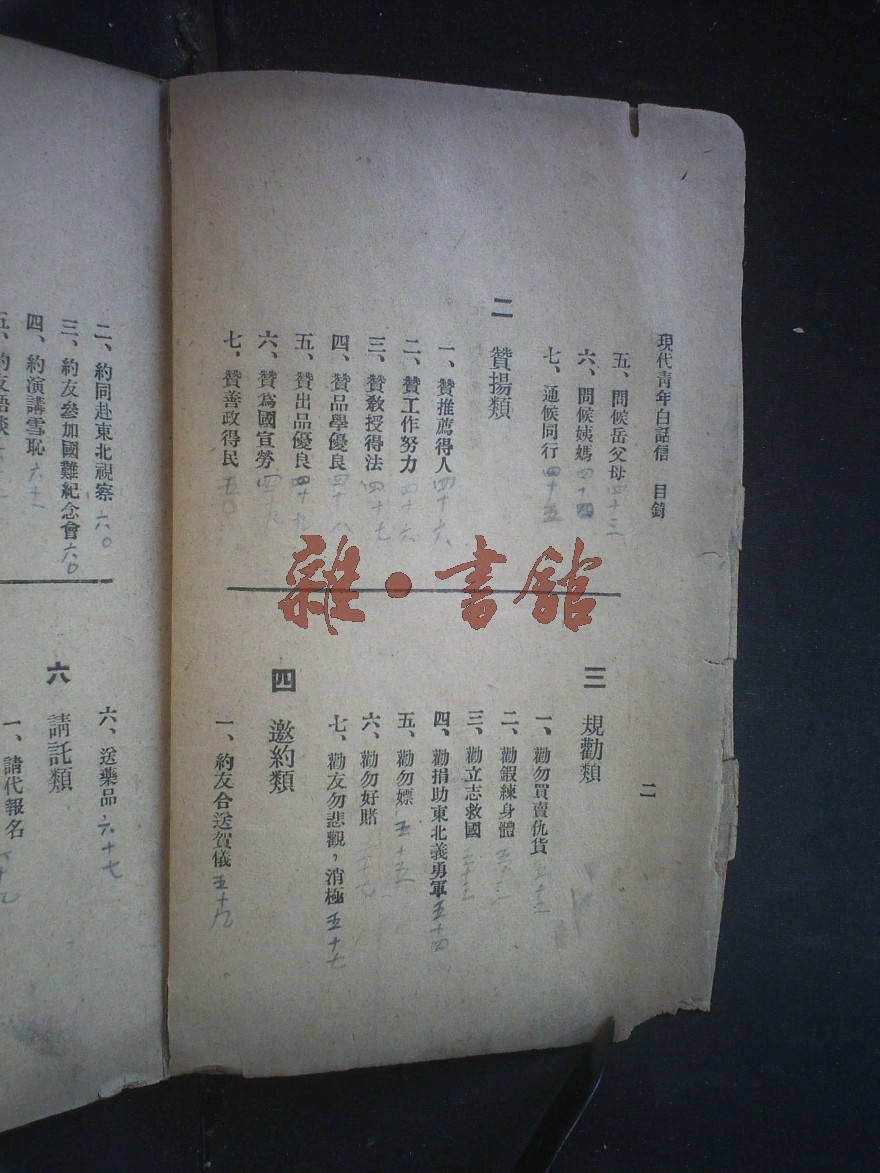 現代青年白話信　目錄
二
五、問候岳父母 四十三
六、問候姨媽 四十四
七、通候同行 四十五
二　贊揚類
一、贊推薦得人 四十六
二、贊工作努力 四十六
三、贊教授得法 四十七
四、贊品學優良 四十八
五、贊出品優良 四十九
六、贊為國宣勞 四十九
七、贊善政得民 五〇
三　規勸類
一、勸勿買賣仇貨
二、勸鍜練身體 五十三
三、勸立志救國 五十三
四、勸捐助東北義勇軍 五十四
五、勸勿嫖 五十五
六、勸勿好賭
七、勸友勿悲觀，消極 五十七
四　邀約類
一、約友合送賀儀 五十九
二、約同赴東北視察 六〇
三、約友參加國難紀念會 六〇
四、約演講雪恥 六十一
六、送藥品 六十七
六　請託類
一、請代報名
雜・書館